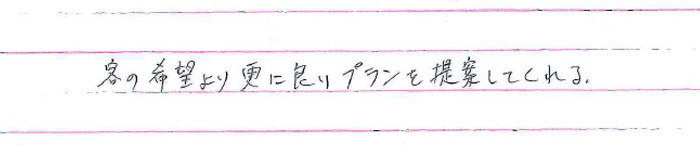 客の希望より更に良いプランを提案してくれる.